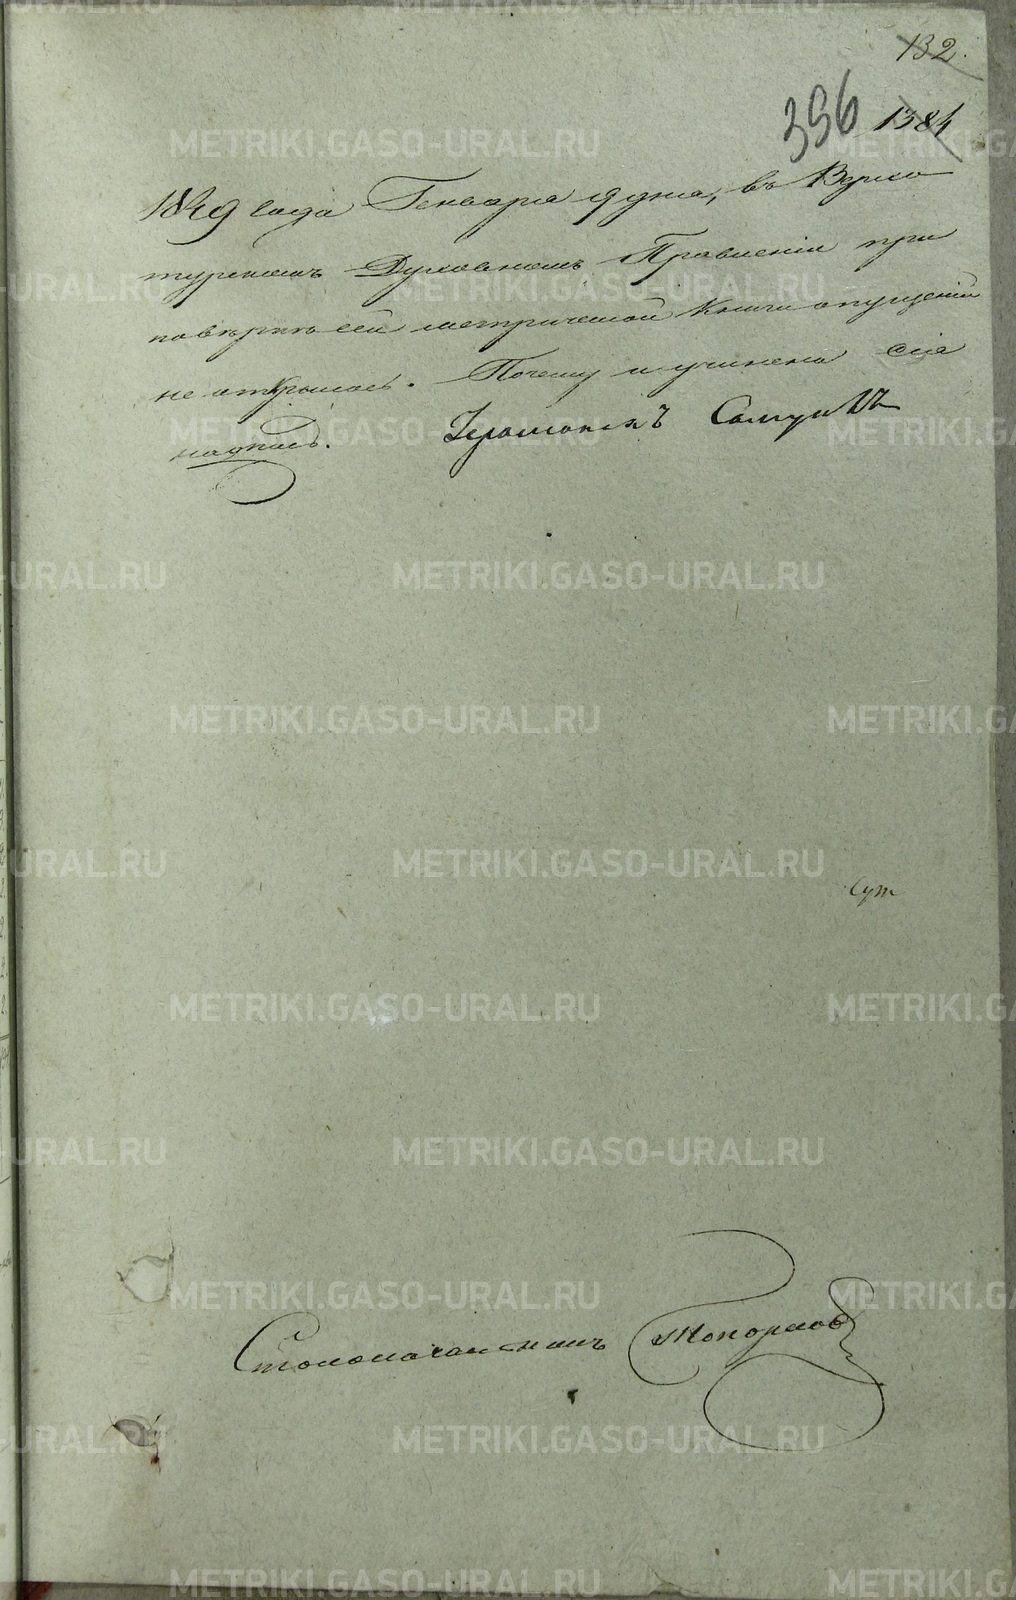 132.
396 1384
1849 года Генваря 9 дня, въ Верхо
турскомъ Духовномъ Правленіи при
повѣркѣ сей метрической книги опущеній
не открылось. Почему и учинена сія
надпись. Іеромонахъ Самуилъ
Столоначальникъ Топорковъ
METRIKI.GASO-URAL.RU